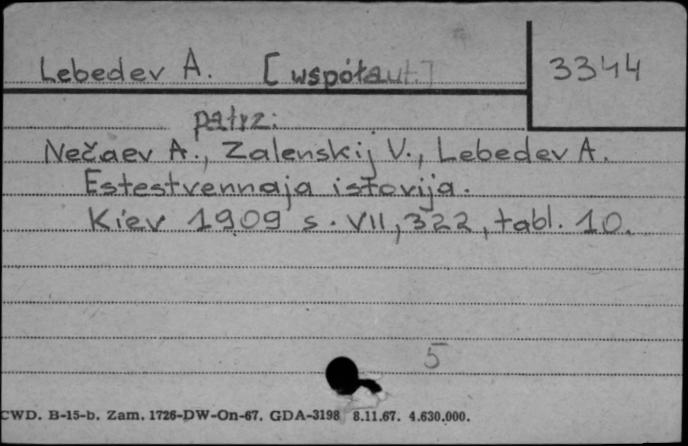 Lebedev A. [współaut.] 3344
patrz:
Nečaev A., Zalenskij V., Lebedev A.
Estestvennaja istorija.
Kiev 1909 s. VII, 322, tabl. 10.
5
CWD. B-15-b. Zam. 1726-DW-On-67. GDA-3198 8.11.67. 4.630.000.